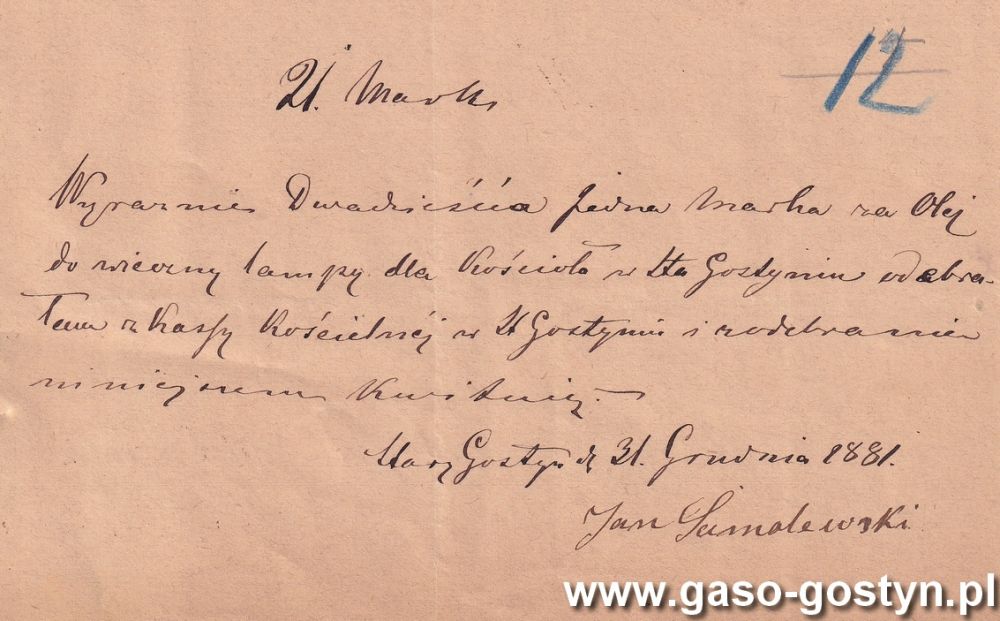 12
21. Marks
Wyraznie Dwadzieścia Jedna Marka za Olej
do wieczny lampy dla Kościoła w Sta Gostyniu odebra-
łem z Kassy Kościelnéj w St Gostyniu i z odebrania
niniejszem Kwituię. —
Stary Gostyń d 31. Grudnia 1881.
Jan Samolewski
www.gaso-gostyn.pl